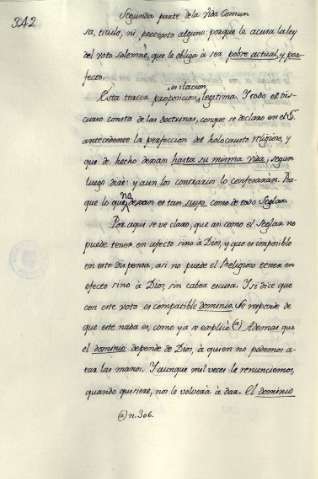 342
Segunda parte de la Vida Comun
sa, titulo, ni, pretexto alguno: porque la acusa la ley
del voto solemne, que le obligó à ser pobre actual, y per-
fecto.
es ilacion
Esta tracea proposicion, legitima. Y todo el dis-
curso consta de las doctrinas, conque se declaró en el §.
antecedente la perfeccion del holocausto religioso, y
que de hecho donan hasta su misma vida, segun
luego diré: y aun los contrarios lo confesarán. Por-
no
que lo que donan es tan suyo como de todo Seglar.
Por aqui se ve claro, que asi como el Seglar no
puede tener en efecto sino à Dios, y que es imposible
en esto dispensa, asi no puede el Religioso tener en
efecto sino à Dios, sin caber escusa. Y si dice que
con este voto es compatible dominio. Se responde
que este nada es, como ya se explicó (a) Ademas que
el dominio depende de Dios, à quien no podemos a-
tar las manos. Y aunque mil veces le renunciemos,
quando quisiere, nos le volverá à dar. El dominio
(a) n. 306.